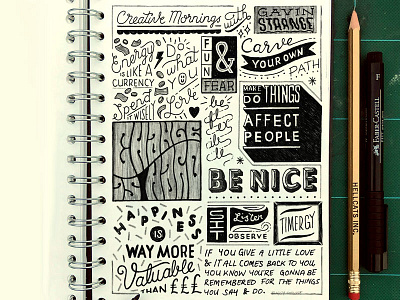 Creative Mornings with
GAVIN
STRANGE
Energy
IS LIKE A
CURRENCY
Spend
it WISELY
Do
what
you
Love
FUN
&
FEAR
Carve
YOUR OWN
PATH
MAKE
DO THINGS
AFFECT
PEOPLE
CHANGE
BE NICE
HAPPINESS
IS
WAY MORE
Valuable
THAN £££
SIT
Listen
OBSERVE
TIMERGY
IF YOU GIVE A LITTLE LOVE
& IT ALL COMES BACK TO YOU
YOU KNOW YOU'RE GONNA BE
REMEMBERED FOR THE THINGS
YOU SAY & DO.
HELLCATS INC.
FABER-CASTELL
F